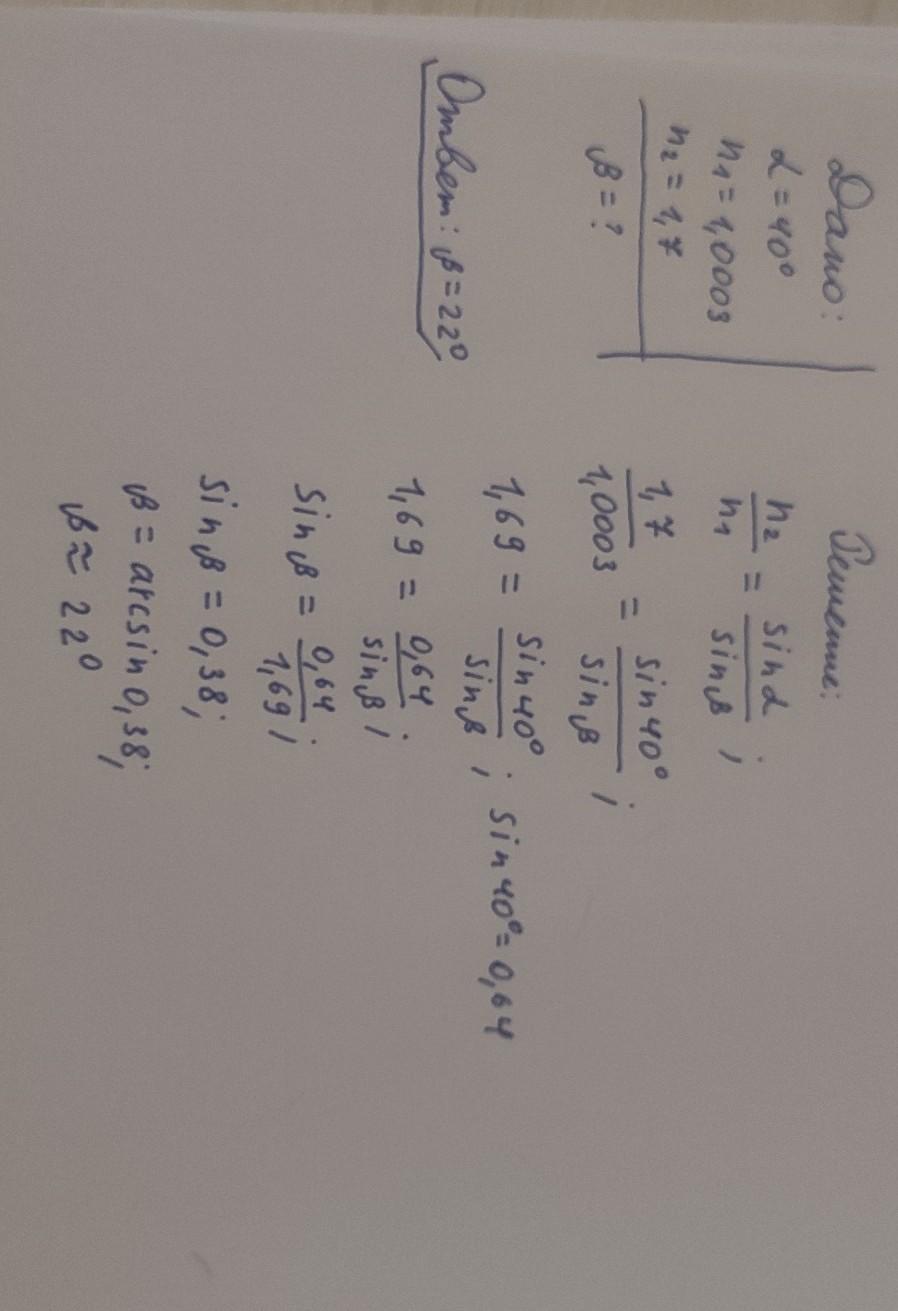 Дано:
α = 40°
n₁ = 1,0003
n₂ = 1,7
β = ?
Решение:
n₂/n₁ = sinα/sinβ ;
1,7/1,0003 = sin40°/sinβ ;
1,69 = sin40°/sinβ ; sin40° = 0,64
1,69 = 0,64/sinβ ;
sinβ = 0,64/1,69 ;
sinβ = 0,38;
β = arcsin0,38;
β ≈ 22°
Ответ: β = 22°